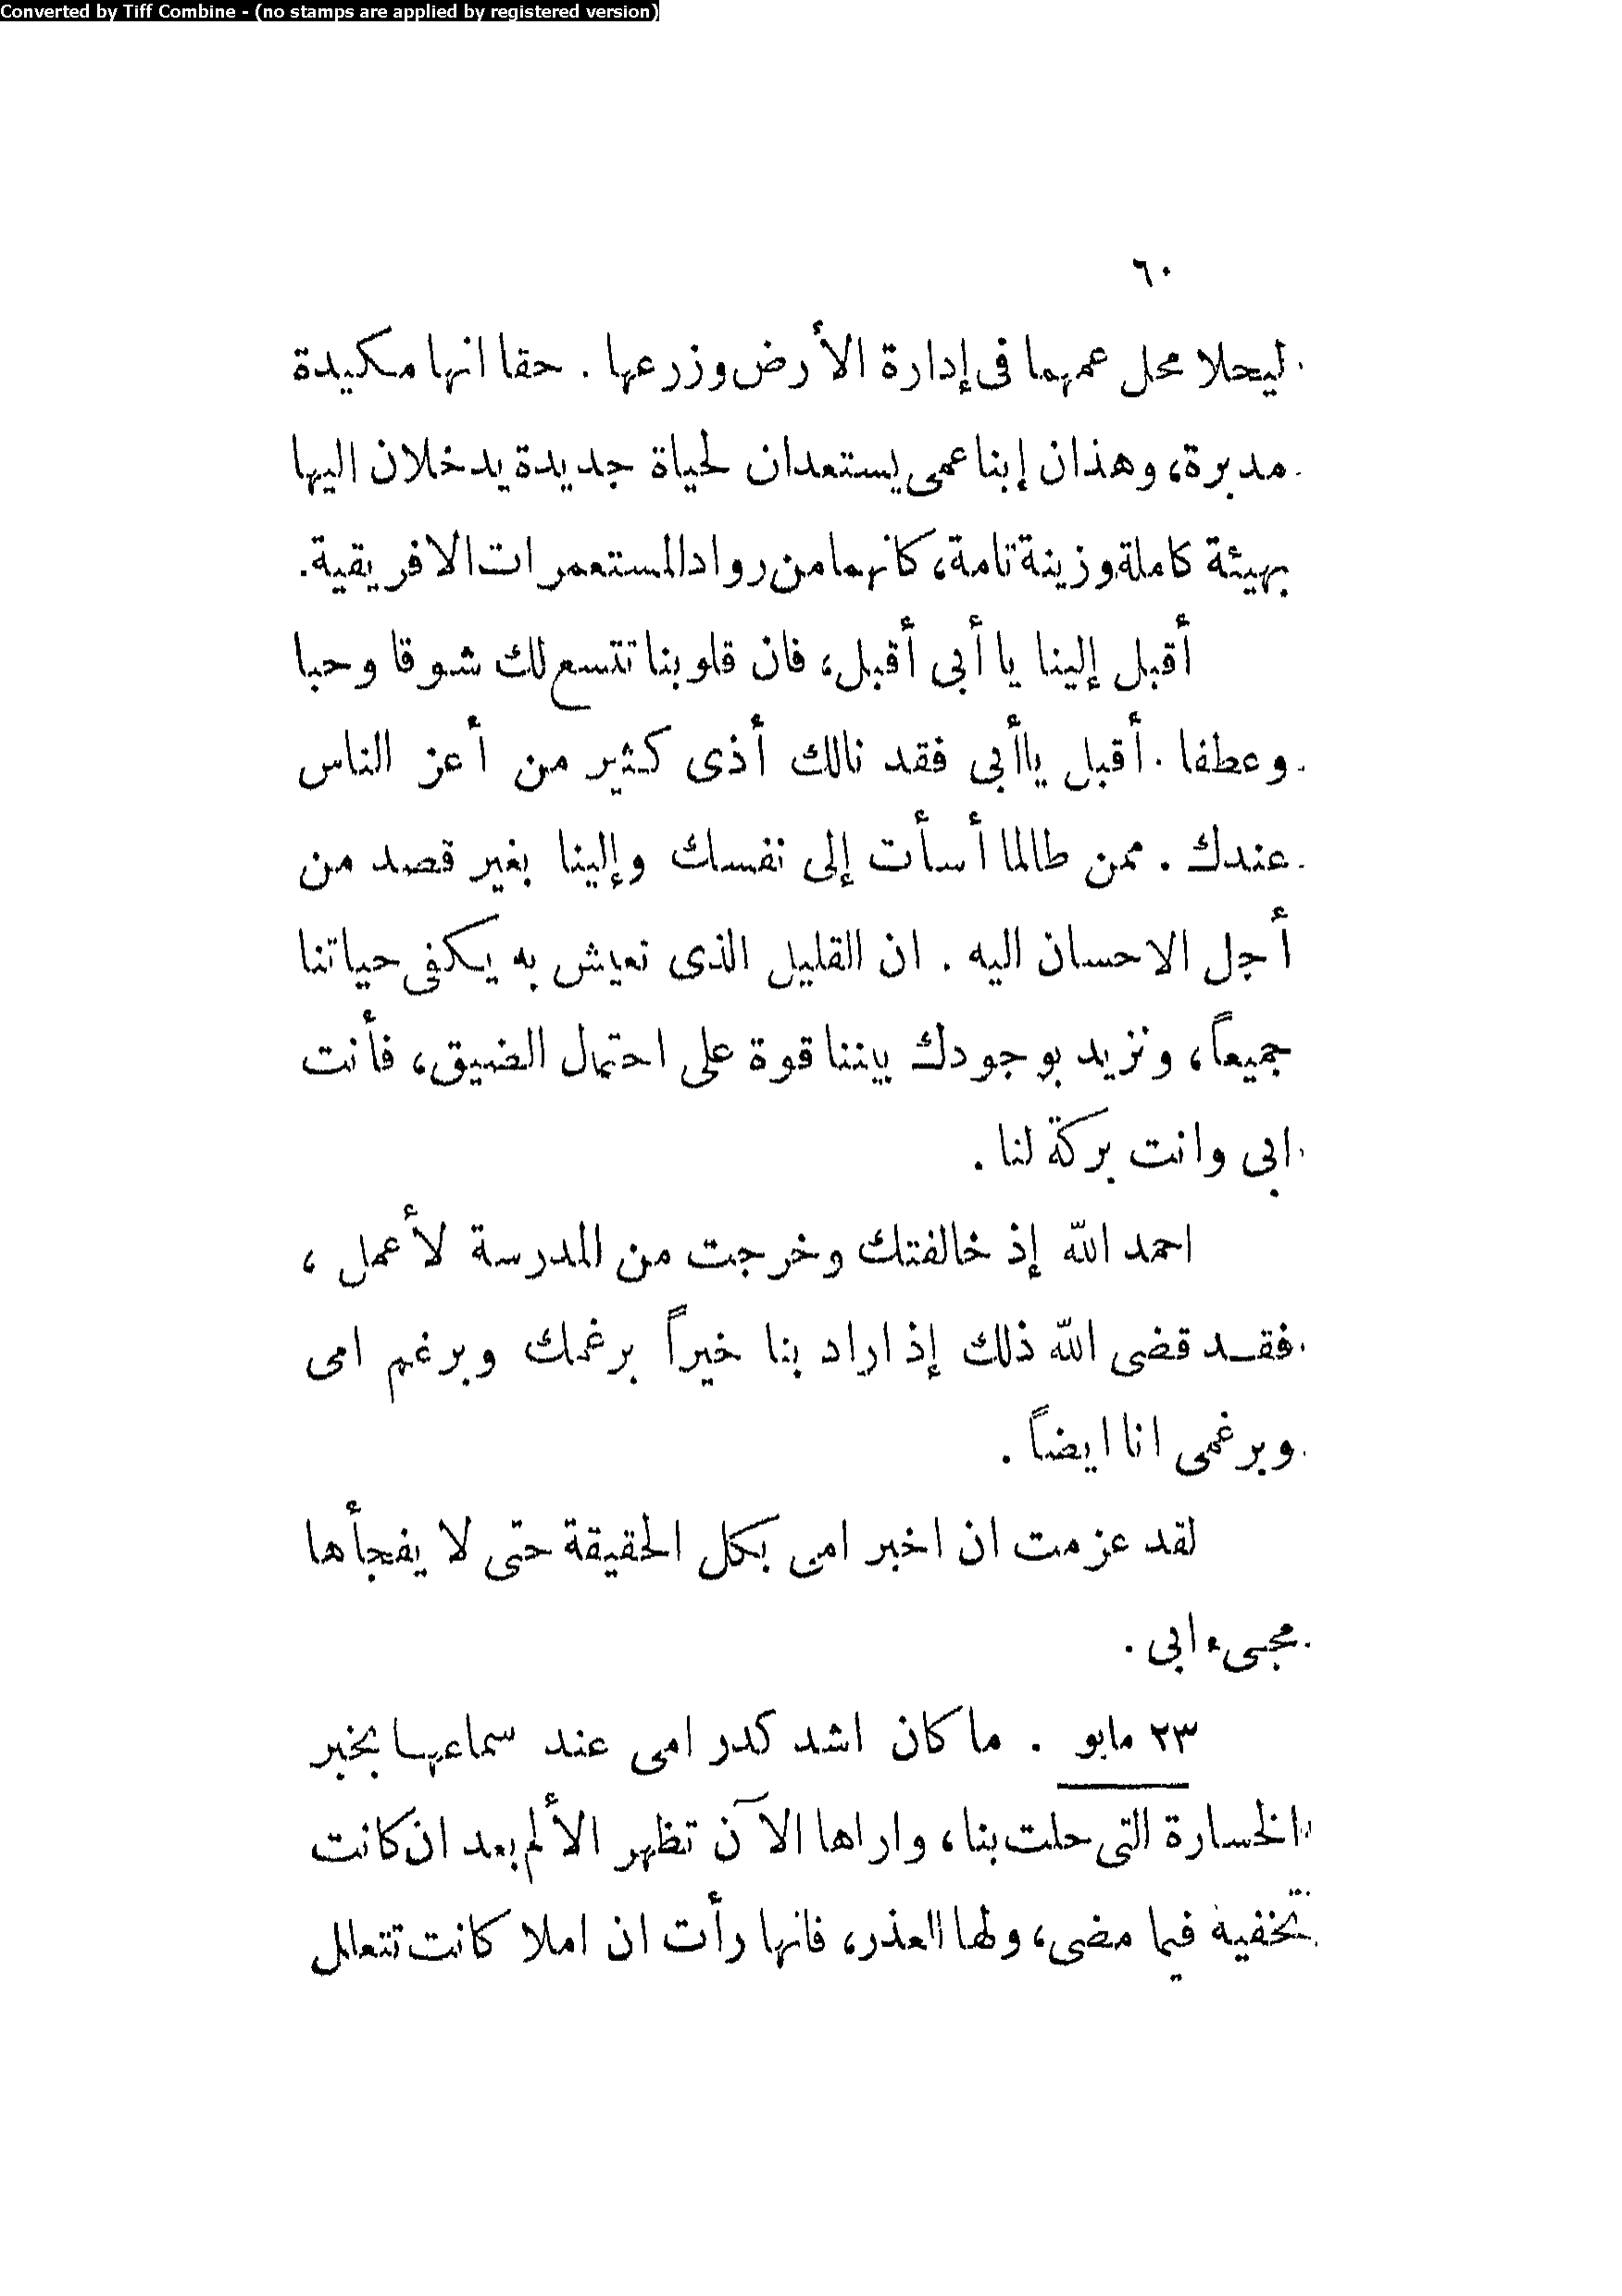 Converted by Tiff Combine - (no stamps are applied by registered version)
٦٠
ليحلا محل عمهما فى إدارة الأرض وزرعها . حقا انها مكيدة
مدبرة، وهذان إبنا عمى يستعدان لحياة جديدة يدخلان اليها
بهيئة كاملة وزينة تامة، كانهما من رواد المستعمرات الافريقية.
أقبل إلينا يا أبى أقبل، فان قلوبنا تتسع لك شوقا وحبا
وعطفا . أقبل ياأبى فقد نالك أذى كثير من أعز الناس
عندك . ممن طالما أسأت إلى نفسك وإلينا بغير قصد من
أجل الاحسان اليه . ان القليل الذى نعيش به يكفى حياتنا
جميعاً، ونزيد بوجودك بيننا قوة على احتمال الضيق، فأنت
ابى وانت بركة لنا .
احمد الله إذ خالفتك وخرجت من المدرسة لأعمل ،
فقد قضى الله ذلك إذ اراد بنا خيراً برغمك وبرغم امى
وبرغمى انا ايضاً .
لقد عزمت ان اخبر امى بكل الحقيقة حتى لا يفجأها
مجىء ابى .
٢٣ مايو . ما كان اشد كدر امى عند سماعها بخبر
الخسارة التى حلت بنا، واراها الآن تظهر الألم بعد ان كانت
تخفيه فيما مضى، ولها العذر، فانها رأت ان املا كانت تتعلل